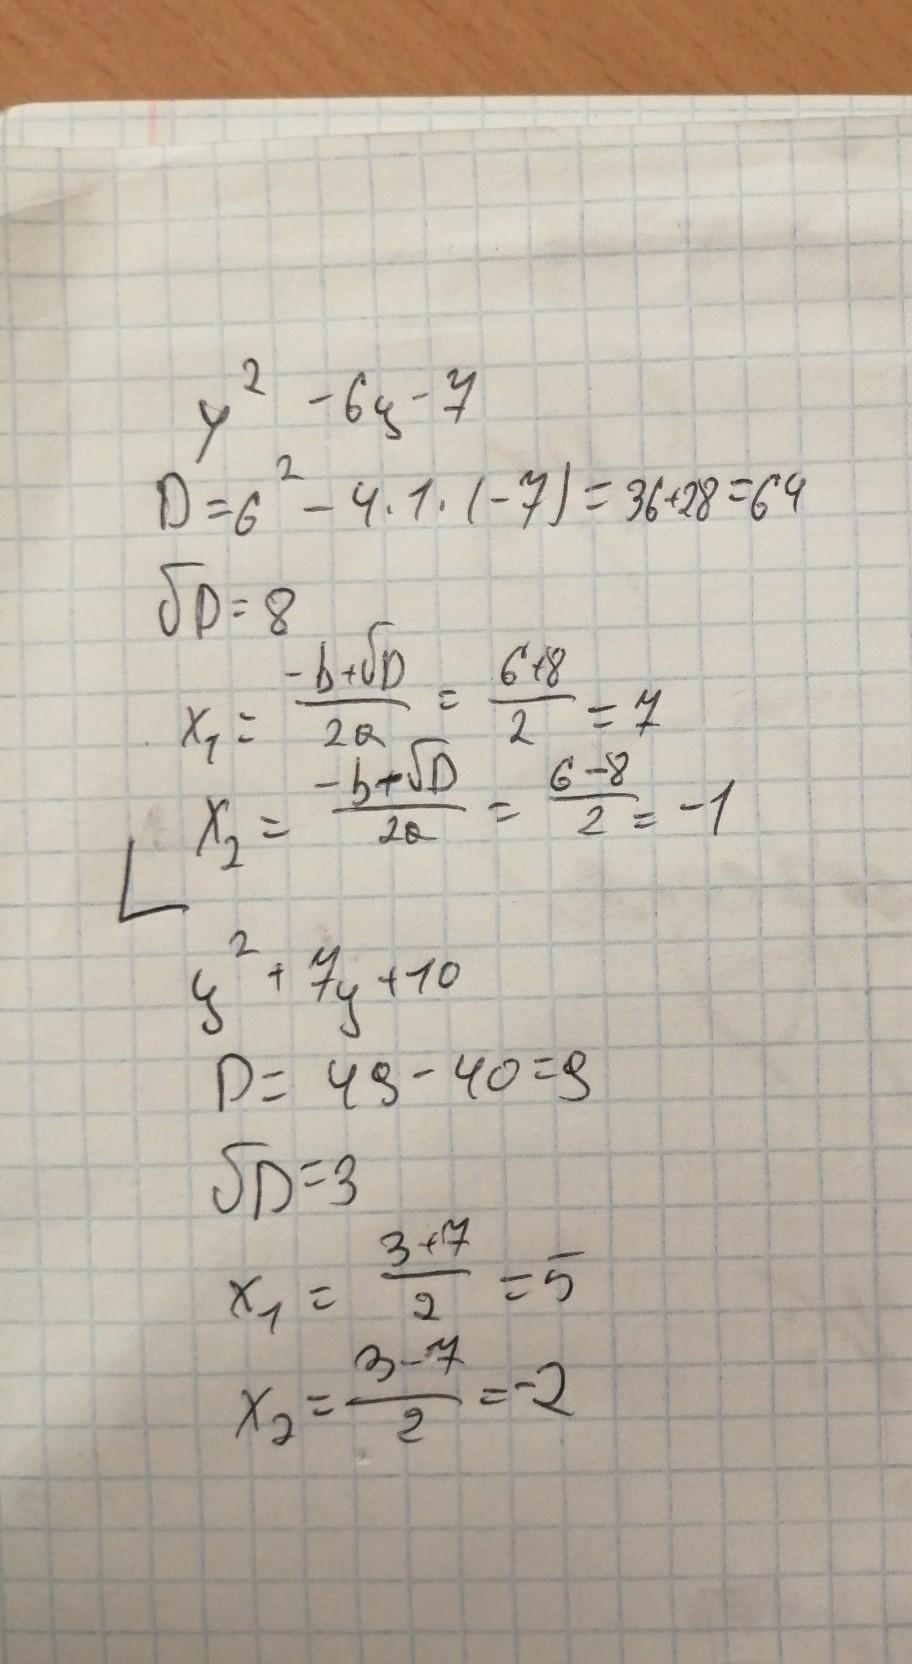 y² - 6y - 7
D = 6² - 4 · 1 · (-7) = 36+28 = 64
√D = 8
x₁ = (-b+√D)/2a = (6+8)/2 = 7
x₂ = (-b-√D)/2a = (6-8)/2 = -1
y² + 7y + 10
D = 49 - 40 = 9
√D = 3
x₁ = (3+7)/2 = 5
x₂ = (3-7)/2 = -2